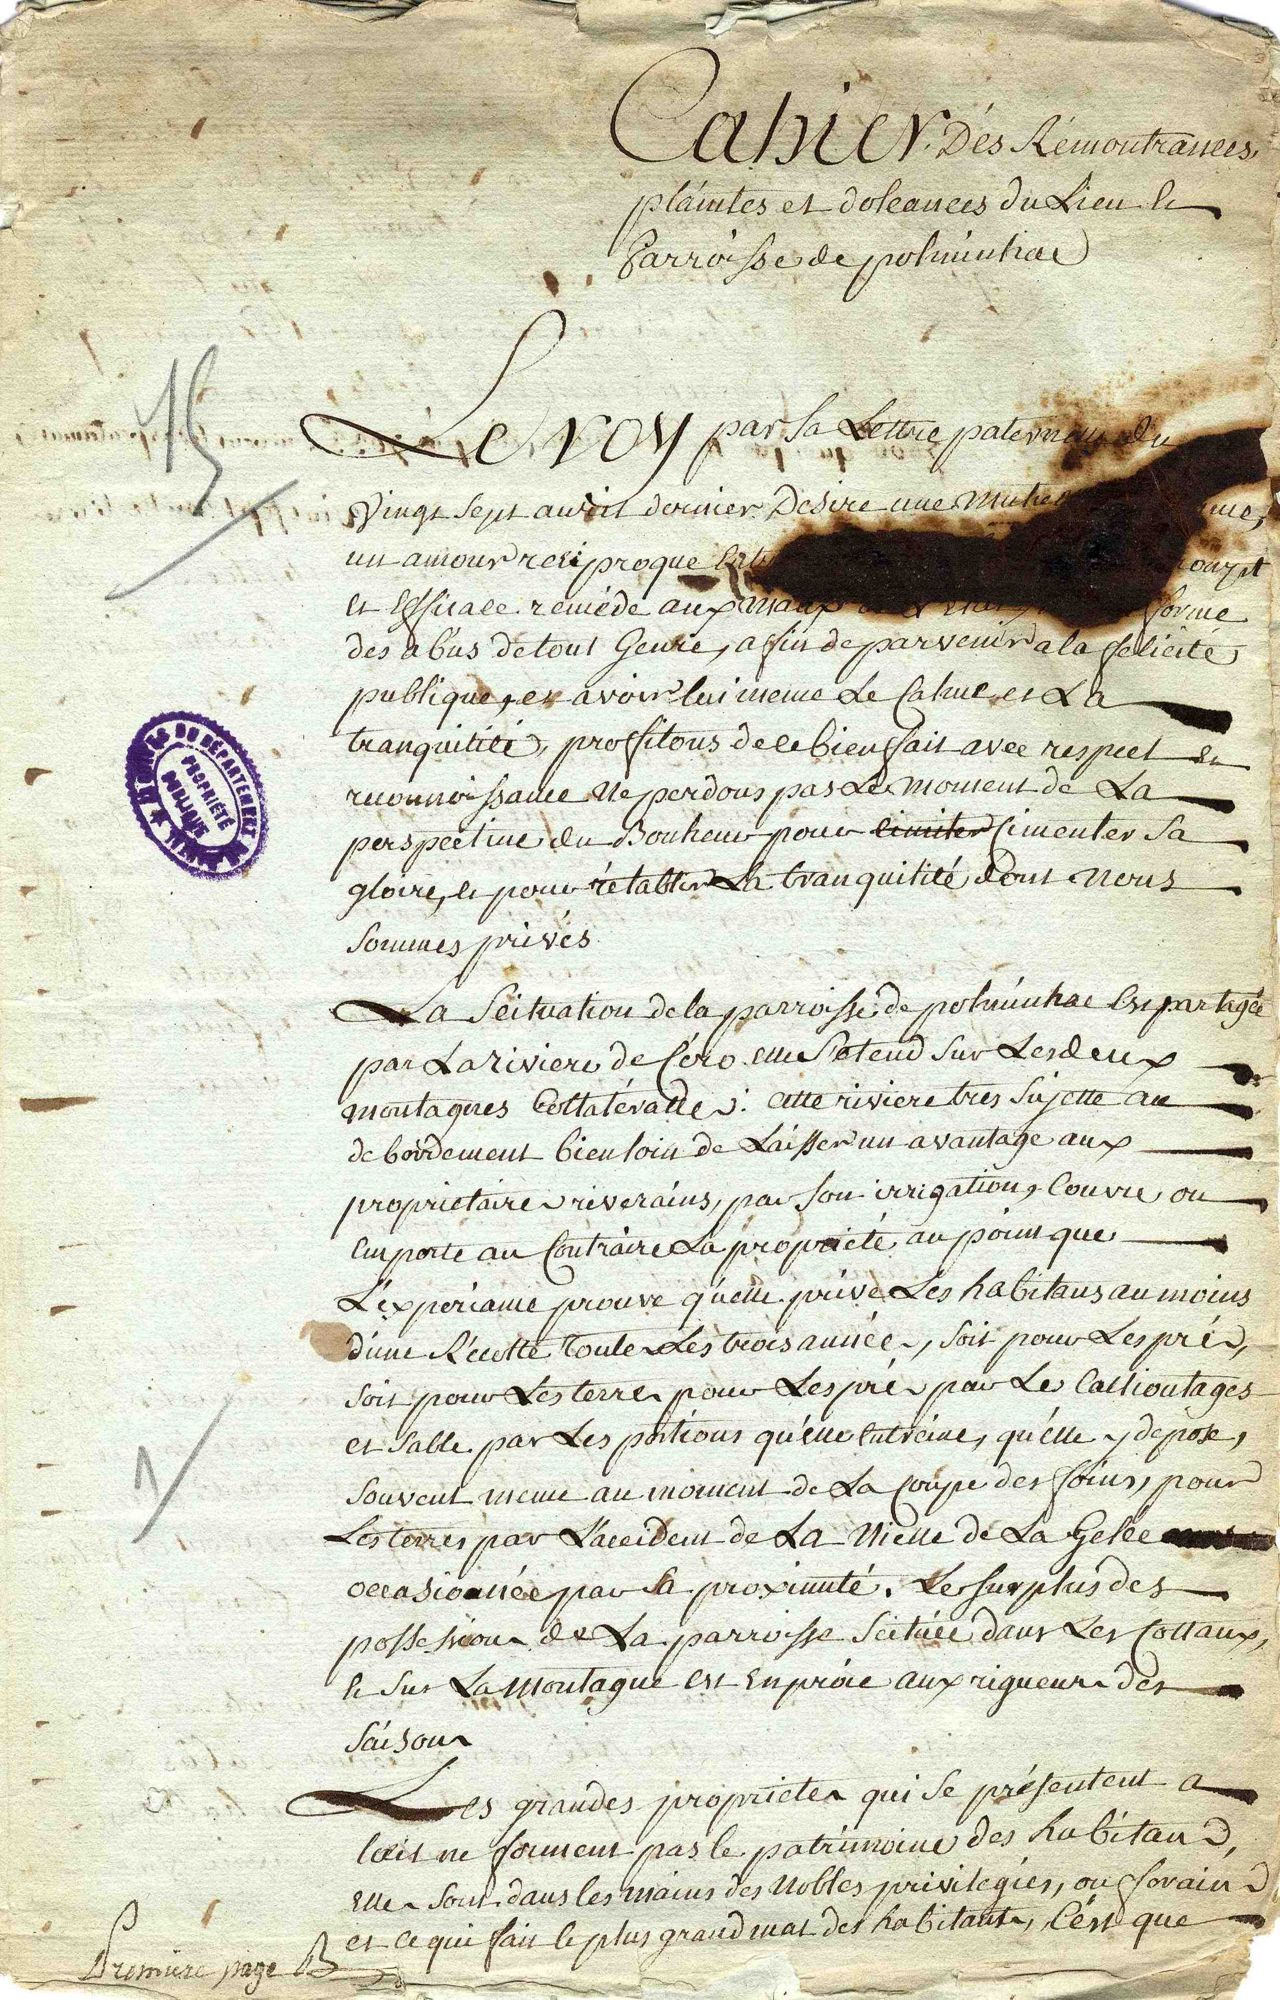 Cahier Dés Rémontrances,
plaintes et doleances du Lieu &
Parroisse de polminhac
15
Le roy par sa Lettre paternelle du
Vingt sept avril dernier Desire une
un amour reciproque prompt
et Efficace reméde aux maux de L'Etat forme
des abus de tout Genre, affin de parvenir a la felicité
publique, et avoir lui meme Le Calme et La
tranquilité, proffitons de ce bienffait avec respect et
reconnoissance Ne perdons pas Le moment de La
perspective du Bonheur pour limiter Cimenter Sa
gloire, et pour rétablir La tranquilité dont Nous
sommes privés.
La Scituation de la parroisse de polminhac Est partagée
par La riviere de Céro elle S'étend Sur Les deux
montagnes Collatéralles: cette riviere tres Sujette au
debordement bien loin de Laisser un avantage aux
proprietaires riverains, par Son irrigation, Couvre, ou
Emporte au Contraire La proprieté, au point que
L'éxperiance prouve qu'elle prive Lés habitans au moins
d'une Récolte toutes Les trois années, soit pour Les prés,
soit pour Les terres pour Les prés par Les Cailloutages
et Sable par Les portions qu'elle Entreine, qu'élle y depose,
souvent meme au moment de La Coupe des foins, pour
Les terres par L'accident de La Nielle de La Gelée
occasionnée par sa proximité. Le surplus des
possessions de La parroisse Scituée dans Les Cottaux,
& Sur La montagne est En proie aux rigueurs des
Saisons
Les grandes proprietes qui Se présentent a
l'oeil ne forment pas le patrimoine des habitans,
Elles Sont dans les mains des Nobles privilegiés, ou forains
et ce qui fait le plus grand mal des habitants, C'ést que
1
Premiere page B
ARCHIVES DU DÉPARTEMENT
PROPRIÉTÉ
PUBLIQUE